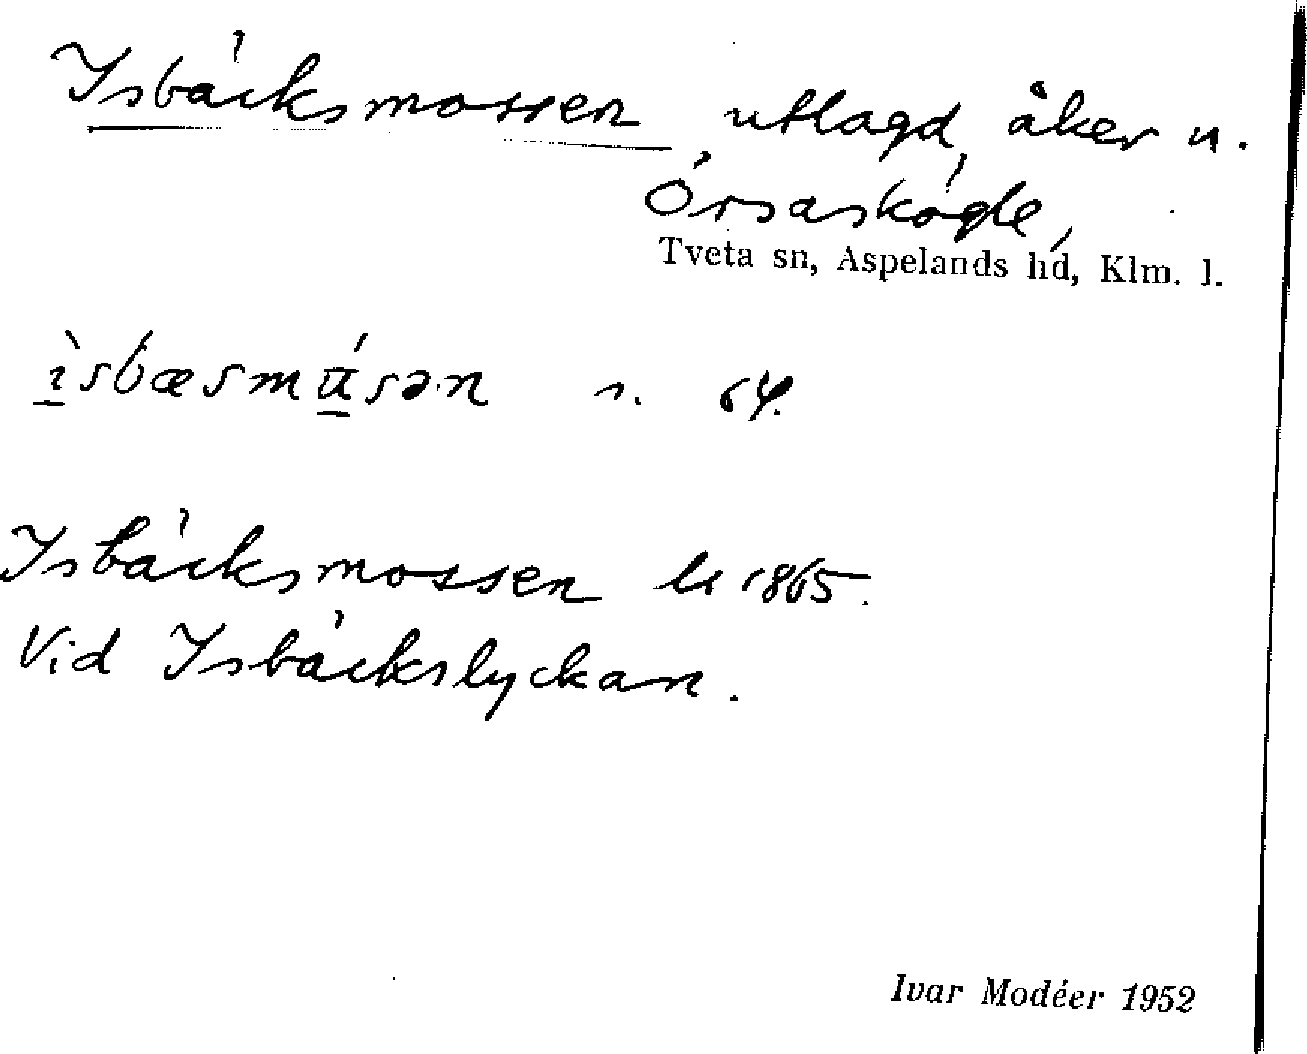 Isbäcksmossen, utlagd åker u.
Örsaskögle,
Tveta sn, Aspelands hd, Klm. l.
ìsbæsmúsən s. 64.
Isbäcksmossen ls 1865.
Vid Isbäckslyckan.
Ivar Modéer 1952